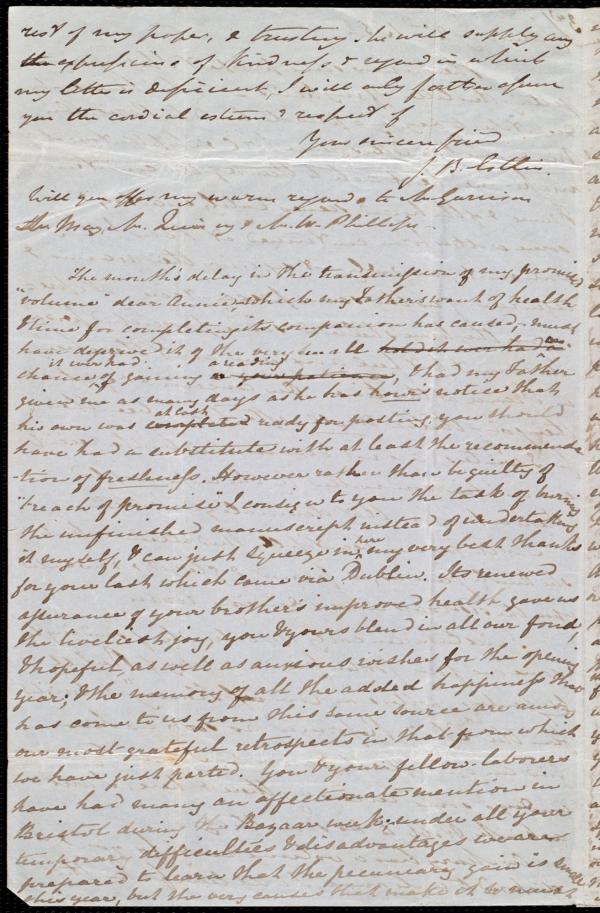 rest of my paper, & trusting she will supply any
the expressions of kindness & regard in which
my letter is deficient, I will only further assure
you the cordial esteem & respect of
Your sincere friend
J. B. Estlin.
Will you offer my warm regards to Mr. Garrison
Mr. May, Mr. Quincy & Mr. W. Phillips.
The month's delay in the transmission of my promised
"volume" dear Annie, which my Father's want of health
& time for completing its companion has caused, must
have deprived it of the very small
it ever had a reading
chance of gaining your patience, & had my Father
given me as many days as he has hours notice that
at last
his own was completed ready for posting, you should
have had a substitute with at least the recommenda-
-tion of freshness. However rather than be guilty of
"breach of promise" I consign to you the task of burning
the unfinished manuscript instead of undertaking
it myself, & can just squeeze in here my very best thanks
for your last which came via Dublin. Its renewed
assurance of your brother's improved health gave us
the liveliest joy, you & yours blend in all our fond,
& hopeful, as well as anxious wishes for the opening
year; & the memory of all the added happiness that
has come to us from this same source are among
our most grateful retrospects in that from which
we have just parted. You & your fellow-laborers
have had many an affectionate mention in
Bristol during the Bazaar week; under all your
temporary difficulties & disadvantages we are
prepared to learn that the pecuniary gain is small
this year, but the very causes that make it so must